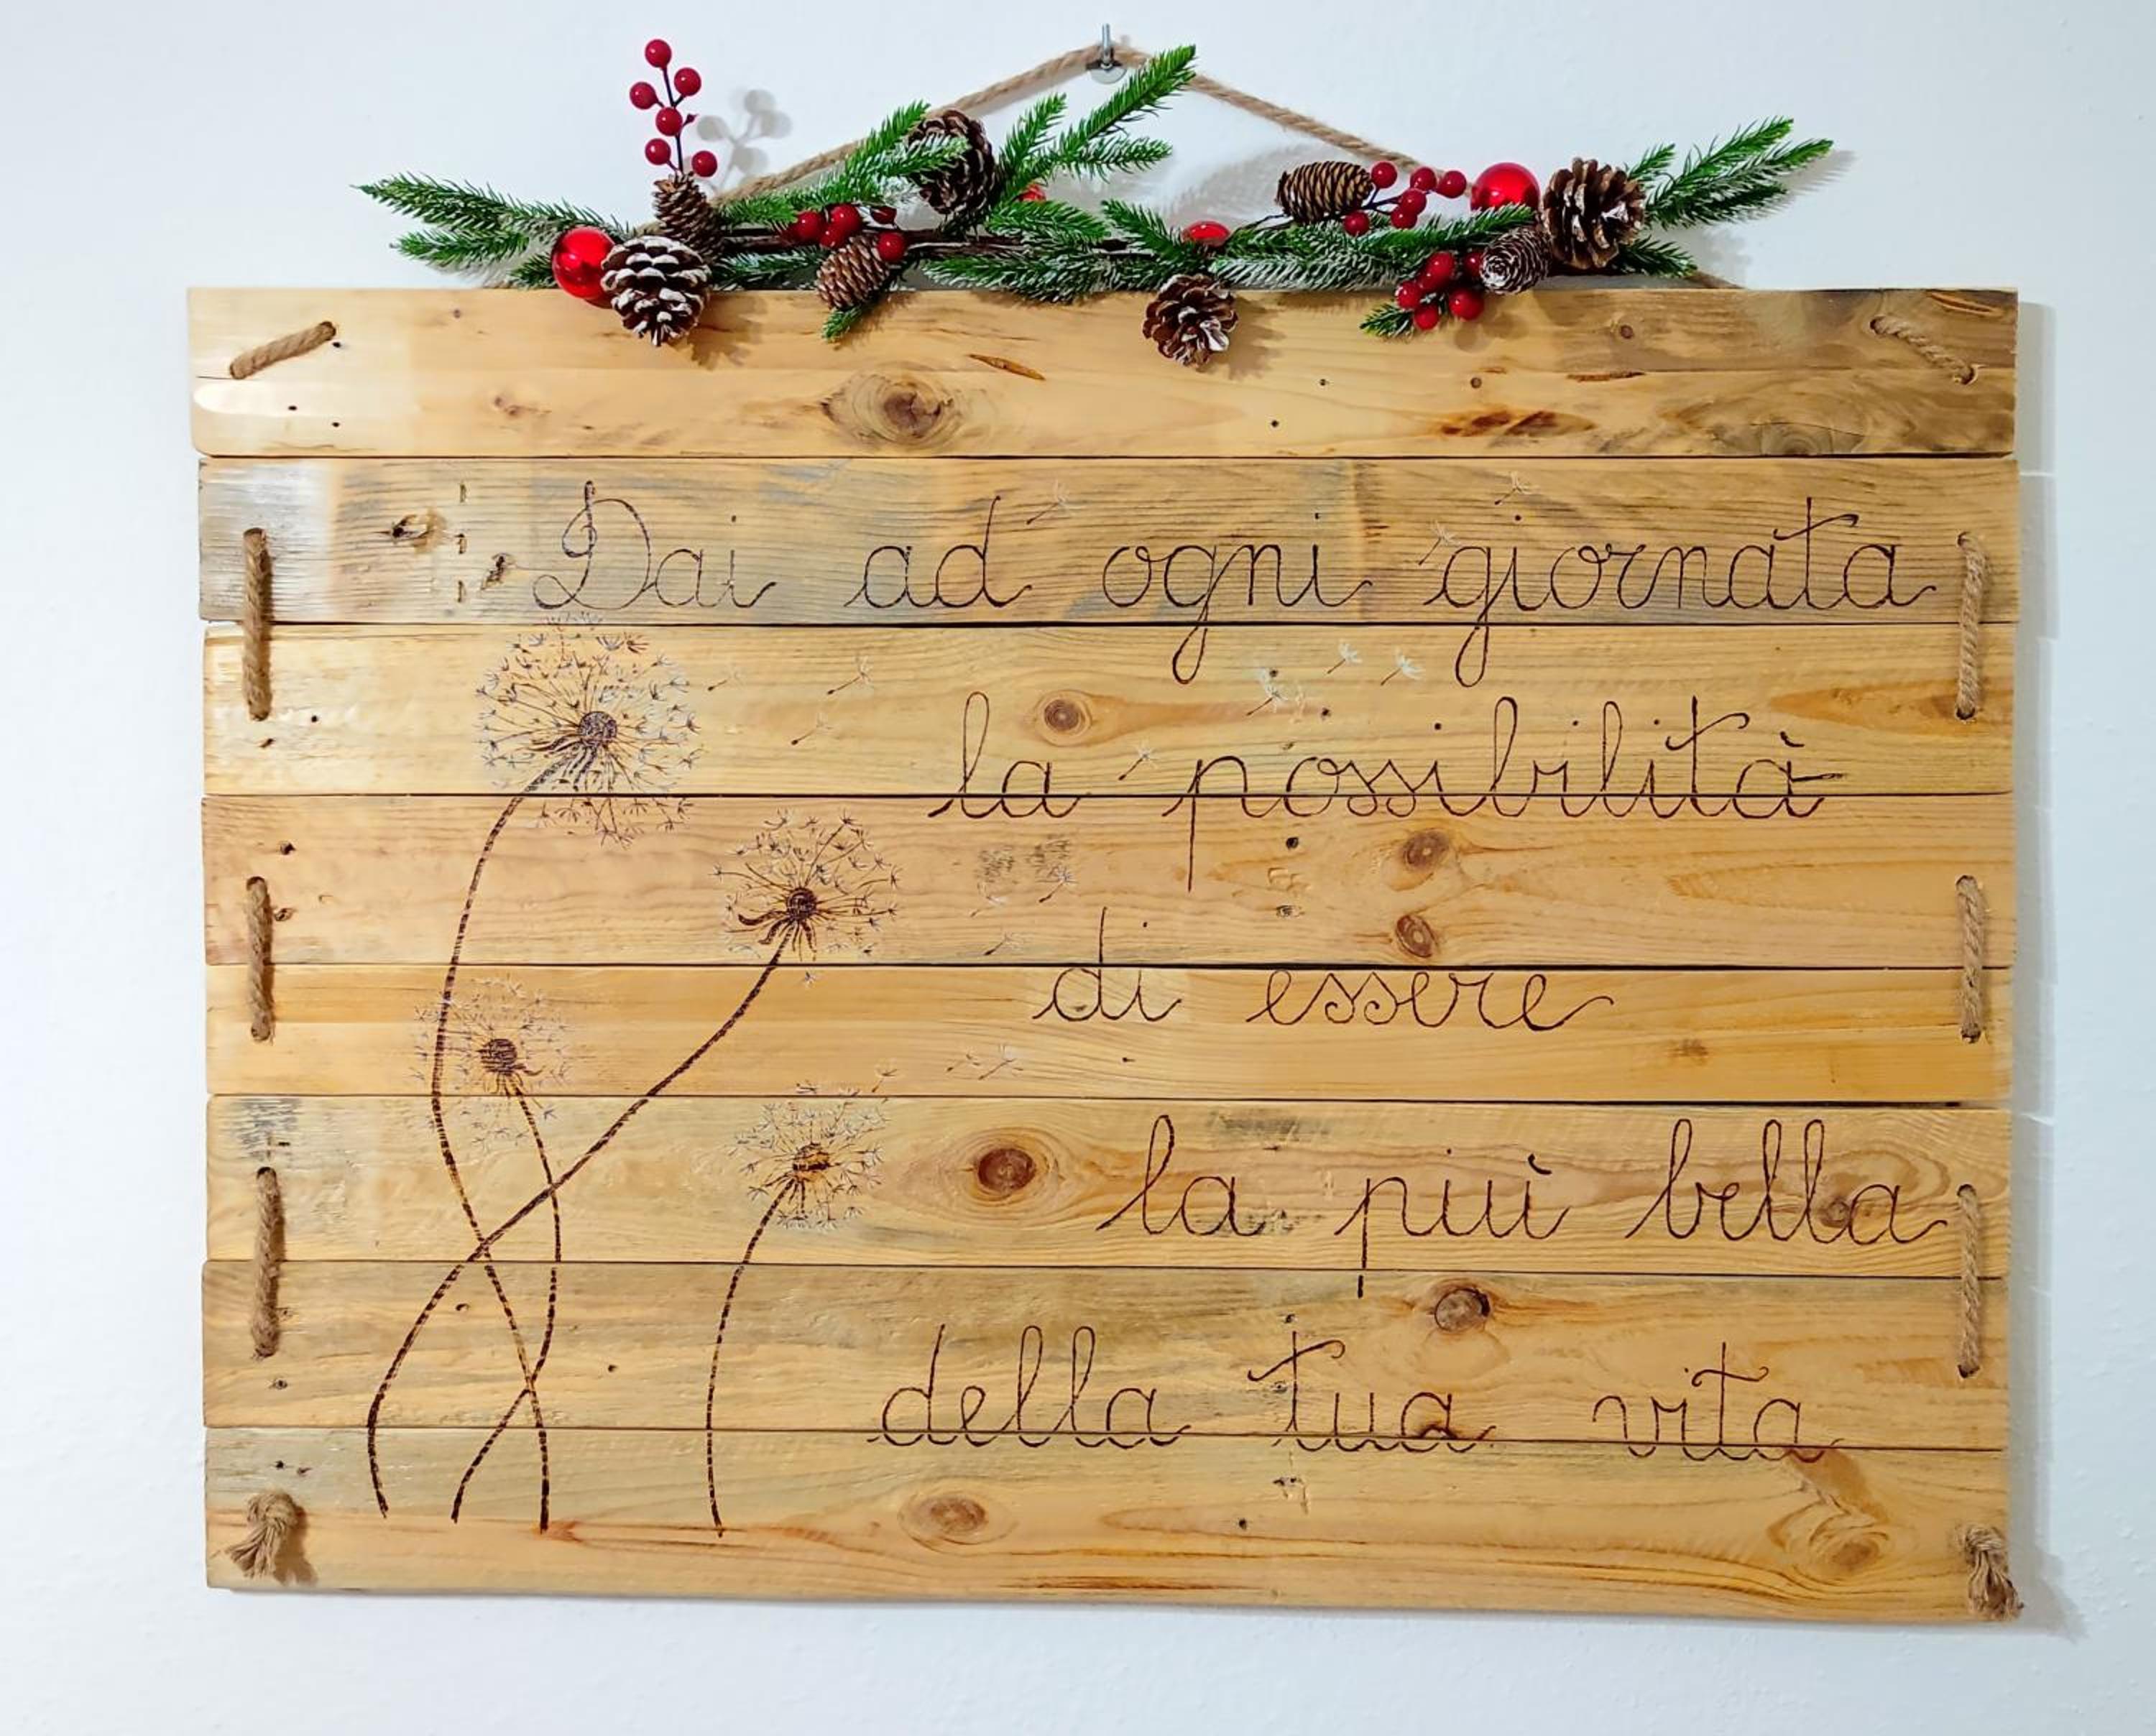 Dai ad ogni giornata
la possibilità
di essere
la più bella
della tua vita